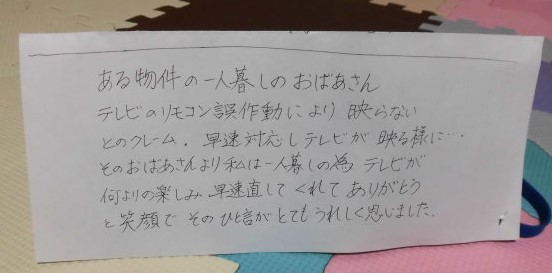 ある物件の一人暮しのおばあさん
テレビのリモコン誤作動により 映らない
とのクレーム。早速対応しテレビが 映る様に…
そのおばあさんより私は一人暮しの為 テレビが
何よりの楽しみ 早速直して くれて ありがとう
と笑顔で そのひと言がとてもうれしく思いました。